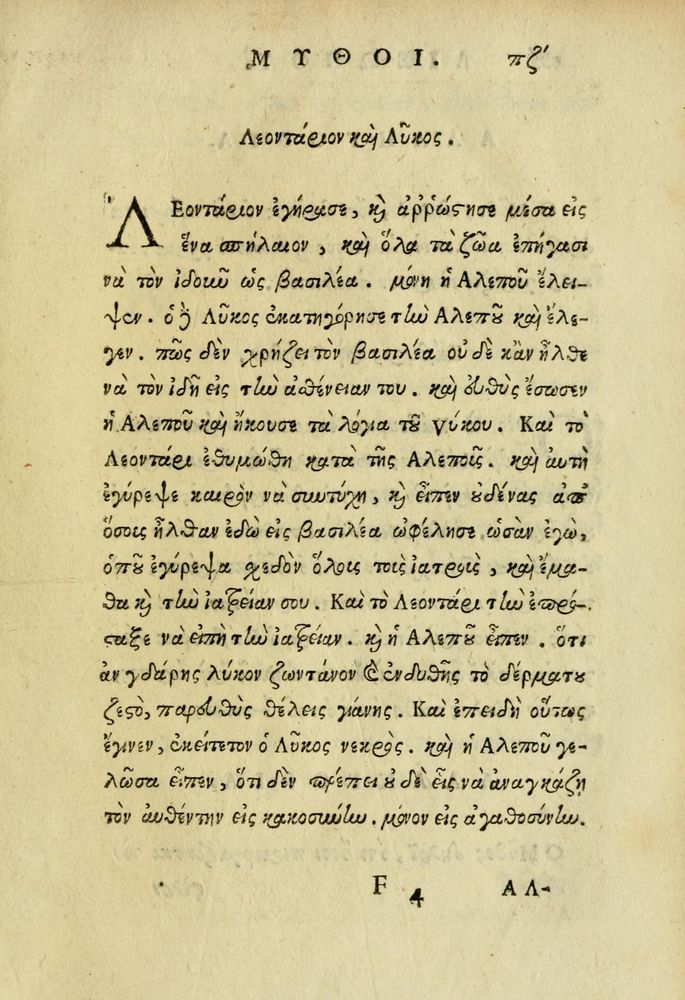 ΜΥΘΟΙ. πζ'
Λεοντάριον καὶ Λῦκος.
ΛΕοντάριον ἐγήρασε, κὶ ἀῤῥώστησε μέσα εἰς
ἕνα σπήλαιον, καὶ ὅλα τὰ ζῶα ἐπήγασι
νὰ τὸν ἰδοιῦ ὡς βασιλέα. μόνη ἡ Αλεποῦ ἔλει-
ψεν. ὁ δὲ Λῦκος ἐκατηγόρησε τὴν Αλεποῦ καὶ ἔλε-
γεν. πῶς δὲν χρήζει τὸν βασιλέα οὐδὲ κᾂν ἦλθε
νὰ τὸν ἰδῆ εἰς τὴν ἀσθένειαν του. καὶ εὐθὺς ἔσωσεν
ἡ Αλεποῦ καὶ ἤκουσε τὰ λόγια τοῦ γύκου. Καὶ τὸ
Λεοντάρι ἐθυμώθη κατὰ τῆς Αλεποῖς. καὶ αὐτὴ
ἐγύρεψε καιρὸν νὰ συντύχη, κὶ εἶπεν οὐδένας ἀπ'
ὅσοις ἦλθαν ἐδὼ εἰς βασιλέα ὠφέλησε ὡσὰν ἐγὼ,
ὁποῦ ἐγύρεψα σχεδὸν ὅλοις τοὶς ἰατροὶς, καὶ ἔμα-
θα κὶ τὴν ἰατρείαν σου. Καὶ τὸ Λεοντάρι τὴν ἐπρός-
ταξε νὰ εἰπῆ τὴν ἰατρείαν. κὶ ἡ Αλεποῦ εἶπεν. ὅτι
ἀν γδάρης λύκον ζωντάνον καὶ ἐνδυθῆς τὸ δέρματου
ζεστὸ, παρευθὺς θέλεις γιάνης. Καὶ ἐπειδὴ οὕτως
ἔγινεν, ἐκείτετον ὁ Λῦκος νεκρὸς. καὶ ἡ Αλεποῦ γε-
λῶσα εἶπεν, ὅτι δὲν πρέπει οὐδὲ εἷς νὰ ἀναγκάζη
τὸν αὐθέντην εἰς κακοσύνην. μόνον εἰς ἀγαθοσύνην.
F 4 ΑΛ-